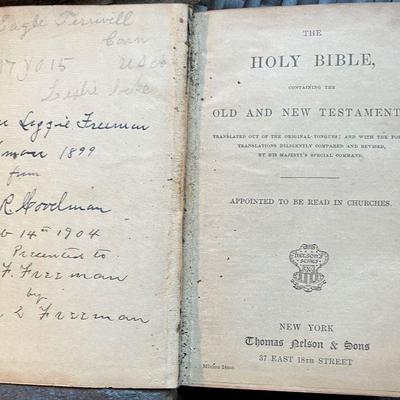 Eagle
Corn
015
Leslie
Freeman
1899
from
R Goodman
14th 1904
Presented to
F. Freeman
by
Freeman
THE
HOLY BIBLE,
CONTAINING THE
OLD AND NEW TESTAMENT
TRANSLATED OUT OF THE ORIGINAL TONGUES; AND WITH THE FOR
TRANSLATIONS DILIGENTLY COMPARED AND REVISED,
BY HIS MAJESTY'S SPECIAL COMMAND.
APPOINTED TO BE READ IN CHURCHES.
NELSON'S
SERIES
NEW YORK
Thomas Nelson & Sons
37 EAST 18TH STREET
Minion 24mo.